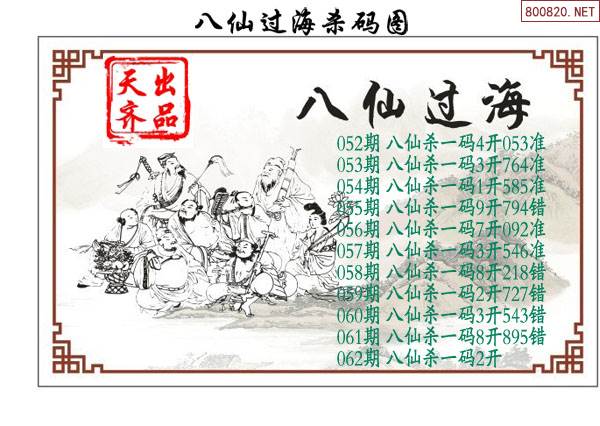 八仙过海杀码图
800820.NET
天齐出品
八仙过海
052期 八仙杀一码4开053准
053期 八仙杀一码3开764准
054期 八仙杀一码1开585准
055期 八仙杀一码9开794错
056期 八仙杀一码7开092准
057期 八仙杀一码3开546准
058期 八仙杀一码8开218错
059期 八仙杀一码2开727错
060期 八仙杀一码3开543错
061期 八仙杀一码8开895错
062期 八仙杀一码2开